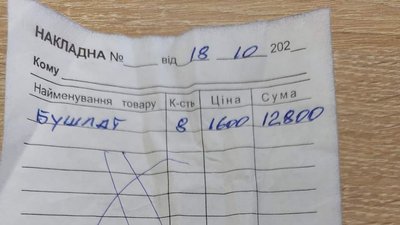 НАКЛАДНА №____ від 18 10 202__
Кому
Найменування товару К-сть Ціна Сума
БУШЛАТ 8 1600 12800